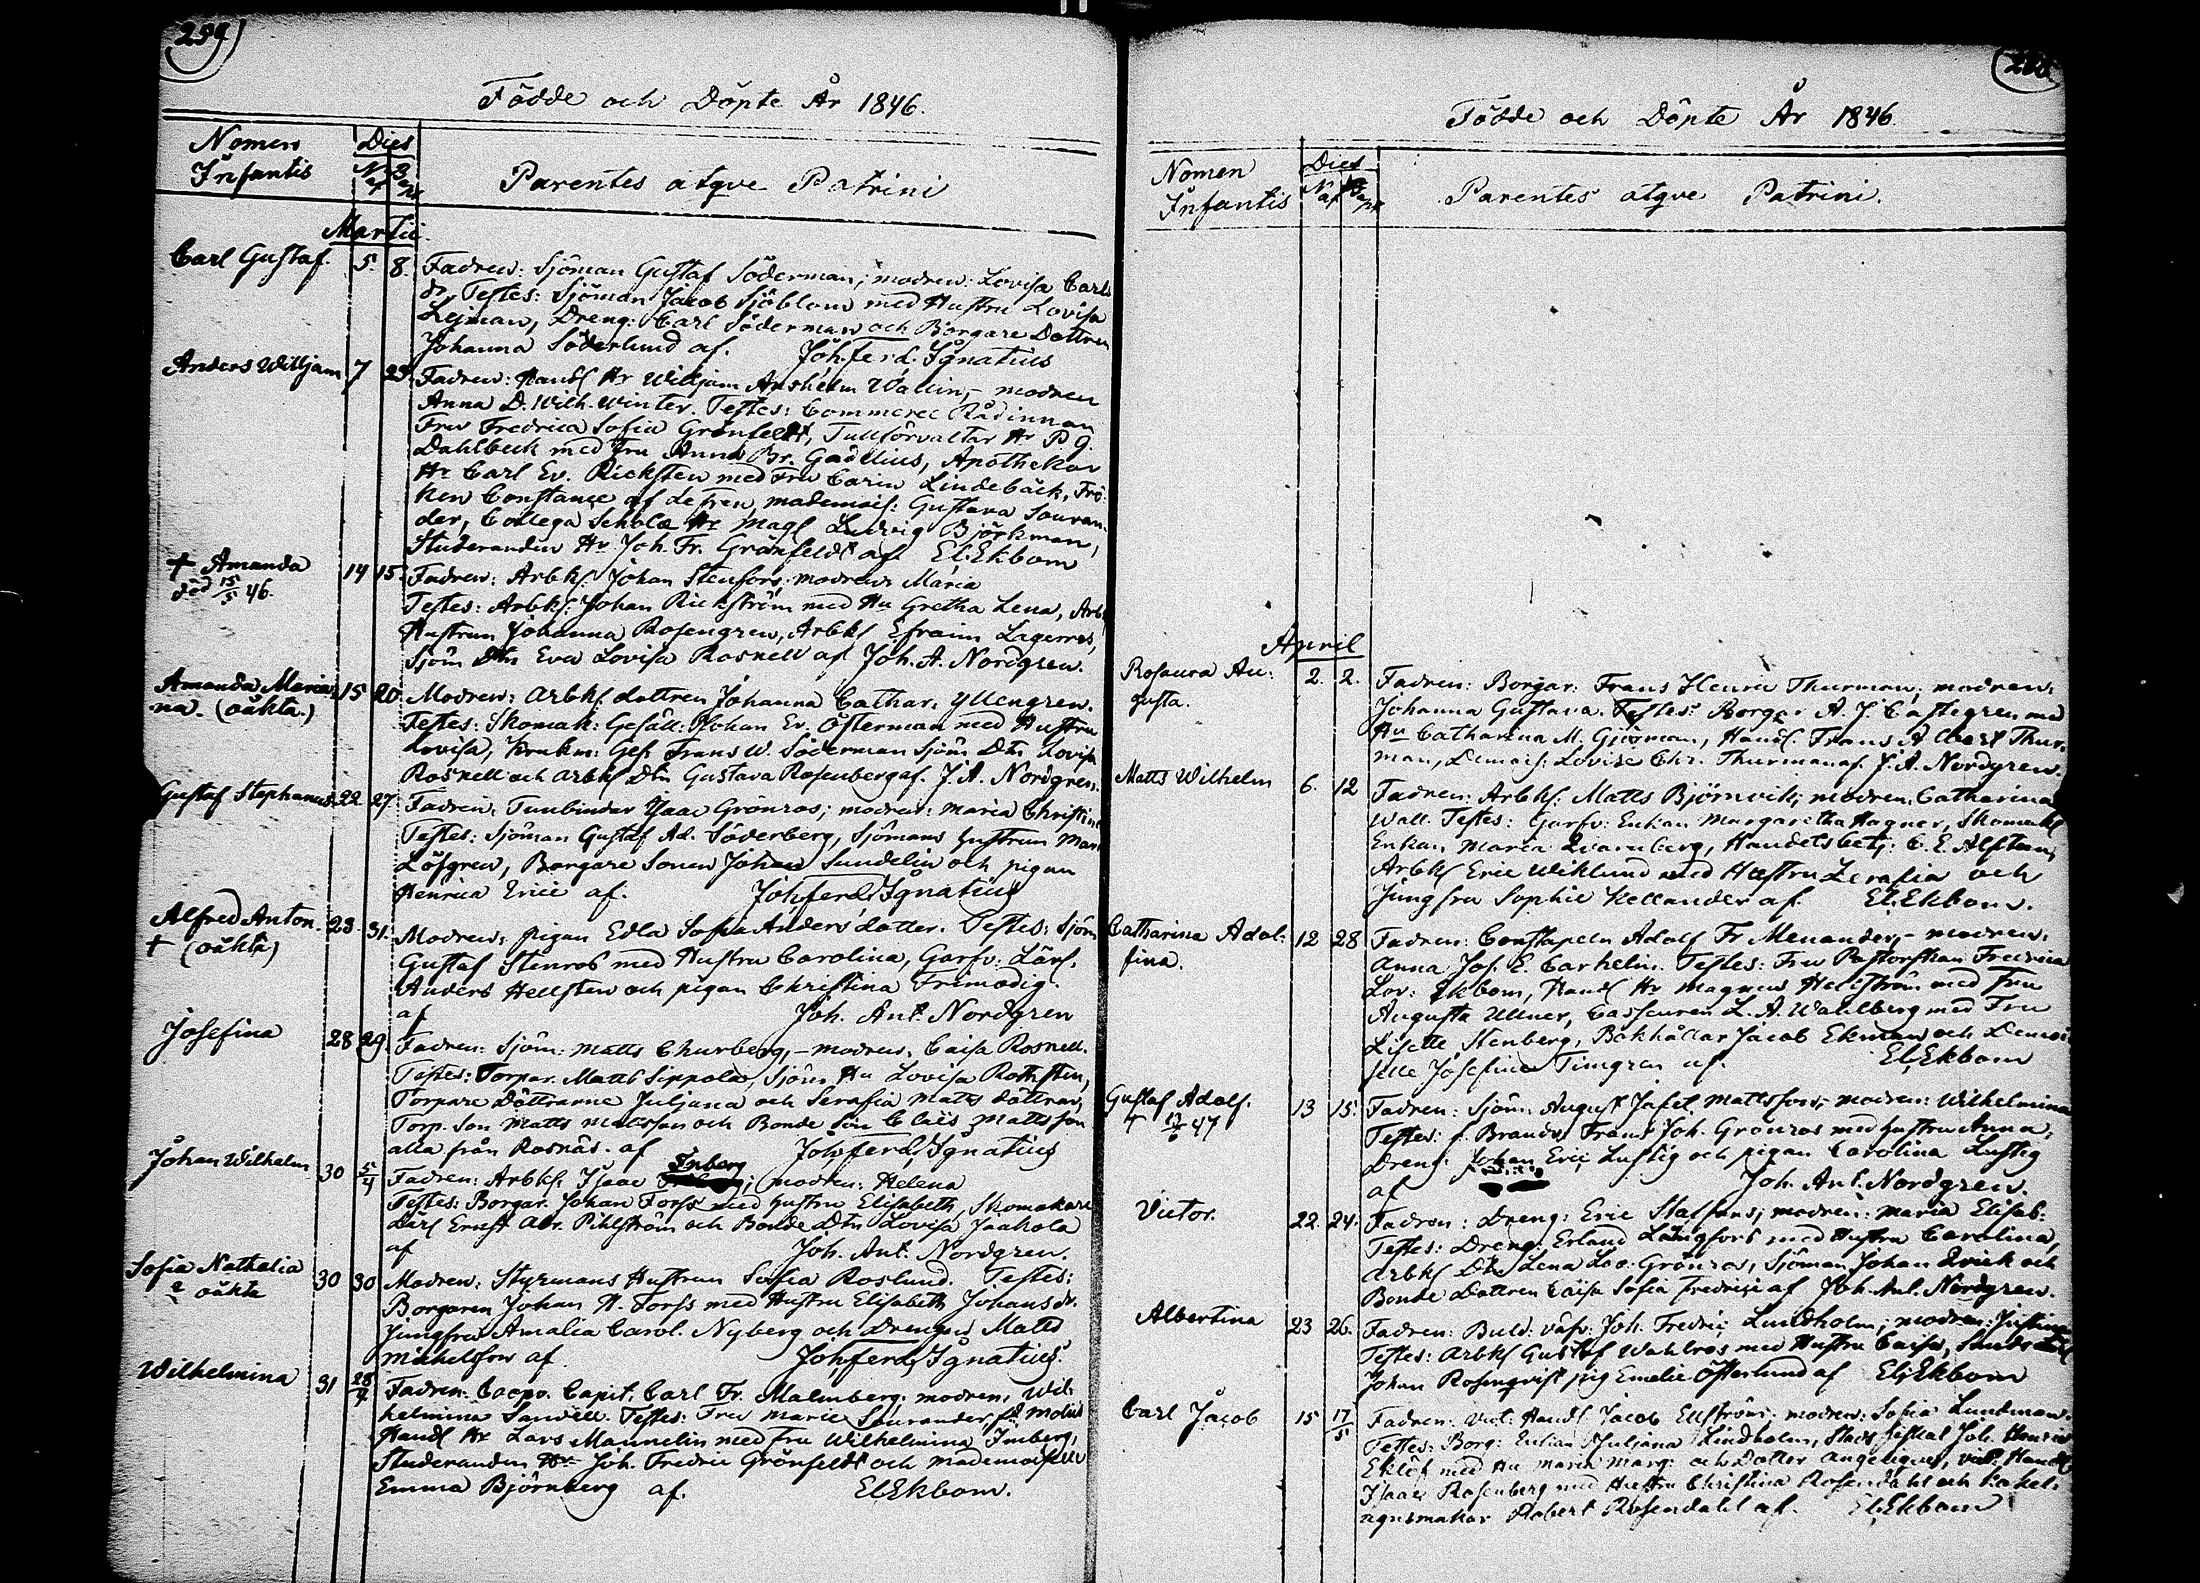 254
Födde och Döpte År 1846.
Nomen Infantis
Dies
Nat Bapt
Parentes atqve Patrini
Martii
Carl Gustaf. 5. 8. Fadren: Sjöman Gustaf Söderman; modren: Lovisa Carls
dr. Testes: Sjöman Jacob Sjöblom med Hustru Lovisa
Lejman, Dreng: Carl Söderman och Borgare Dottren
Johanna Söderlund af. Joh. ferd. Ignatius
Anders Willijam 7 29. Fadren: Handl Hr Willijam Anshelm Wallin, modren
Anna D. Wilh. Winter. Testes: Commerce Rådinnan
Fru Fredrica Sofia Grönfeldt, Tullförvaltar Hr P G.
Dahlbeck med fru Anna Br. Gadelius, Apothekar
Hr Carl Ev. Ricksten med Fru Carin Lindebäck, Frö-
ken Constance af Lefren, mademois: Gustava Souran-
der, Collega Scholæ Hr Magl Ludvig Björkman,
Studeranden Hr Joh. Fr. Grönfeldt af El. Ekbom
† Amanda 14 15. Fadren: Arbk. Johan Stenfors; modren: Maria
död 15/5 46.
Testes: Arbk. Johan Rickström med Hu Gretha Lena, Arbk
Hustrun Johanna Rosengren, Arbk Efraim Lagerroos,
Sjöm Dtr Eva Lovisa Rosnell af Joh. A. Nordgren.
Amanda Maria 15 20 Modren: Arbk dottren Johanna Cathar. Yllengren.
na. (oäkta.)
Testes: Skomak: Gesäll: Johan Ev. Österman med Hustru
Lovisa, Krukm: Ges Frans W. Söderman Sjöm Dtr Lovisa
Rosnell och Arbk Dtr Gustava Rosenberg af. J. A. Nordgren.
Gustaf Stephanus. 22. 27. Fadren: Tunbindar Isaac Grönroos; modren: Maria Christina
Testes: Sjöman Gustaf Ad. Söderberg, Sjömans hustrun Mari
Löfgren, Borgare Sonen Johan Sundelin och pigan
Henrica Eric af. Joh. ferd. Ignatius
Alfred Anton. 23. 31. Modren: pigan Edla Sofia Anders dotter. Testes: Sjöm
† (oäkta)
Gustaf Stenros med Hustru Carolina, Garfv: Lärl.
Anders Hellsten och pigan Christina Frimodig.
af Joh. Ant. Nordgren
Josefina 28 29. Fadren: Sjöm: Matts Churberg, modren: Caisa Rosnell.
Testes: Torpar. Matts Sippola, Sjöm Hu Lovisa Rothsten,
Torpare Döttrarne Juljana och Serafia Matts döttrar,
Torp. Son Matts Mattsson och Bonde Son Claës Mattsson
alla från Rosnäs. af Joh. ferd. Ignatius
Johan Wilhelm 30 5/4 Fadren: Arbk. Isaac Inberg; modren: Helena
Testes: Borgar. Johan Forss med Hustru Elisabeth, Skomakare
Lärl Ernst Abr. Pihlström och Bonde Dtr Lovisa Jaakola
af Joh. Ant. Nordgren.
Sofia Nathalia 30 30 Modren: Styrmans Hustrun Sofia Roslund. Testes:
oäkta
Borgaren Johan H. Forss med Hustru Elisabeth Johansdr.
Jungfru Amalia Carol. Nyberg och Drengen Matts
Mickelsson af. Joh. ferd. Ignatius
Wilhelmina 31 28/4 Fadren: Coopv. Capit. Carl Fr. Malmberg; modren, Wil-
helmina Sanvell. Testes: Fru Marie Sourander,
Handl Hr Lars Mannelin med fru Wilhelmina Imberg,
Studeranden Hr Joh. Fredric Grönfeldt och mademoiselle
Emma Björnberg af. El Ekbom.
Födde och Döpte År 1846.
Nomen Infantis
Dies
Nat Bapt
Parentes atqve Patrini.
April
Rosaura Au- 2. 2. Fadren: Borgar: Frans Henric Thurman; modren:
gusta.
Johanna Gustava. Testes: Borgar A. J. Castegren med
Hu Catharina M. Gjöman, Handl. Frans Albert Thur-
man, Demois: Lovise Chr. Thurman af J. A. Nordgren.
Matts Wilhelm 6. 12 Fadren: Arbk: Matts Björnvik; modren, Catharina
Wall. Testes: Garfv: Enkan Margaretha Hagner, Skomak
Enkan Maria Qvarnberg, Handelsbetj: C. E. Alstam,
Arbk Eric Wiklund med Hustru Serafia och
Jungfru Sophie Kellander af. El. Ekbom.
Catharina Adol- 12 28 Fadren: Constapeln Adolf Fr Menander, modren.
fina.
Anna Jos. E. Carhelin. Testes: Fru Pastorskan Fredrica
Lov: Ekbom, Handl Hr Magnus Hellström med Fru
Augusta Ullner, Casseuren L. A. Wahlberg med Fru
Lisette Stenberg, Bokhållar Jacob Ekman och Demoi-
selle Josefina Timgren af. El. Ekbom
Gustaf Adolf. 13 15. Fadren: Sjöm: August Jafet Mattsson, modren: Wilhelmina
† 13/6 47
Testes: f. Brandv Frans Joh. Grönros med hustru Anna,
Dreng. Johan Eric Lustig och pigan Carolina Lustig
af Joh. Ant. Nordgren.
Victor. 22. 24. Fadren: Dreng: Eric Staffans; modren: Maria Elisab:
Testes: Dreng: Erland Långfors med Hustru Carolina,
Arbk Dtr Lena Lov. Grönros, Sjöman Johan Qvick och
Bonde Dottren Caisa Sofia Fredrici af Joh. Ant. Nordgren.
Albertina 23 26. Fadren: Buld. väfv: Joh. Fredric Lindholm; modren: Justina
Testes: Arbk Gustaf Wahlros med Hustru Caisa,
Johan Rosenqvist pig Emelie Österlund af El. Ekbom
Carl Jacob 15 17/5 Fadren: Vict. Handl Jacob Ellström: modren: Sofia Lundman.
Testes: Borg: Enkan Juljana Lindholm, Stads fiskal Joh. Henric
Eklöf med Hu Maria Marg: och Dotter Angelique, vict: Handl
Isaac Rosenberg med Hustru Christina Rosendahl och Kakel-
ugnsmakar Robert Rosendahl af. El. Ekbom